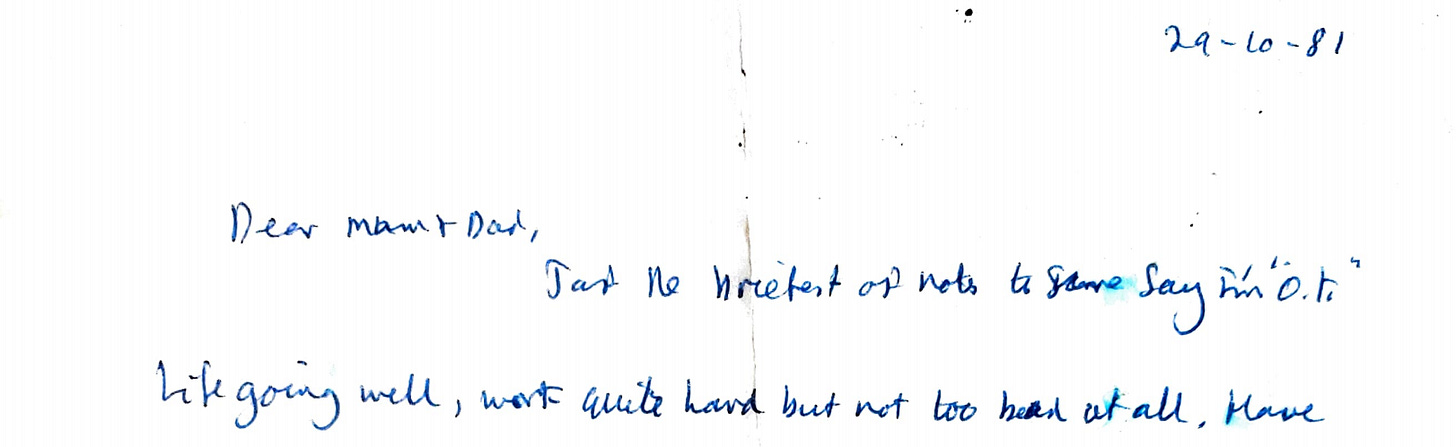 29-10-81
Dear Mam + Dad,
Just the briefest of notes to say I'm "O.K."
Life going well, work quite hard but not too bad at all. Have